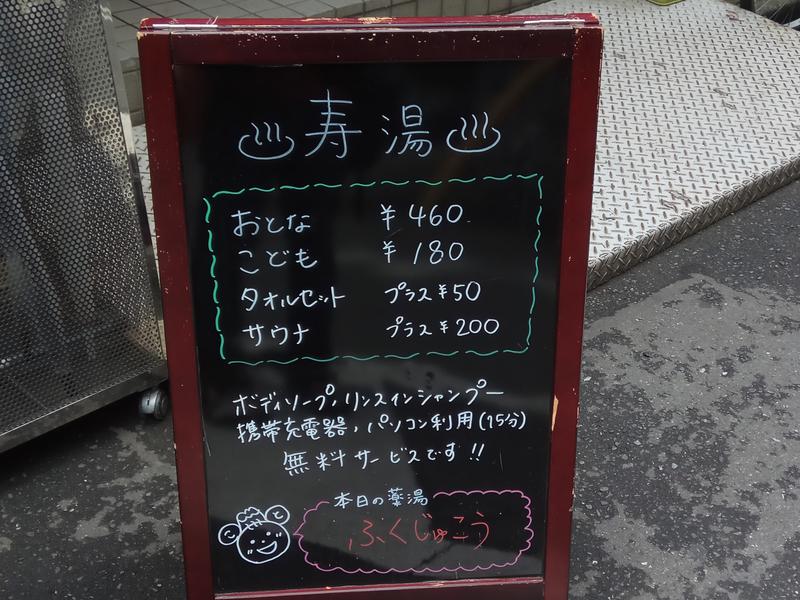 ♨寿湯♨
おとな ¥460
こども ¥180
タオルセット プラス¥50
サウナ プラス¥200
ボディソープ,リンスインシャンプー
携帯充電器,パソコン利用(15分)
無料サービスです!!
本日の薬湯
ふくじゅこう
こ と